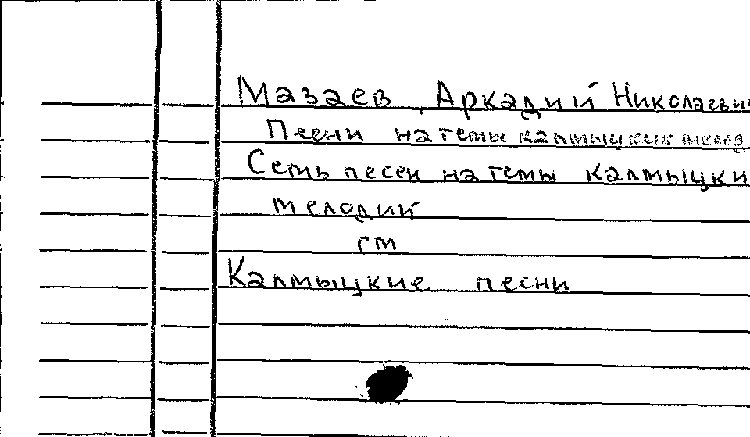 Мазаев, Аркадий Николаевич
Песни на темы калмыцких мелод
Семь песен на темы калмыцки
мелодий
см
Калмыцкие песни